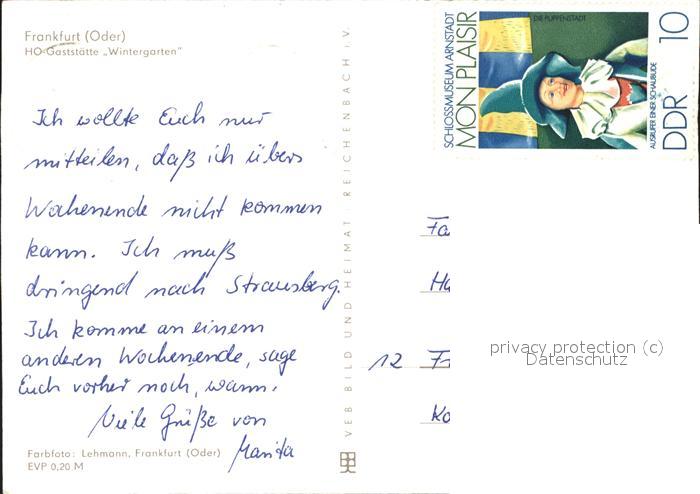 Frankfurt (Oder)
HO-Gaststätte „Wintergarten"
Ich wollte Euch nur
mitteilen, daß ich übers
Wochenende nicht kommen
kann. Ich muß
dringend nach Strausberg.
Ich komme an einem
anderen Wochenende, sage
Euch vorher noch, wann.
Viele Grüße von
Marita
Farbfoto: Lehmann, Frankfurt (Oder)
EVP 0,20 M
VEB BILD UND HEIMAT REICHENBACH i. V.
SCHLOSSMUSEUM ARNSTADT
MON PLAISIR
DIE PUPPENSTADT
AUSRUFER EINER SCHAUBUDE
DDR 10
Fa
Ha
12 F
Ko
privacy protection (c)
Datenschutz